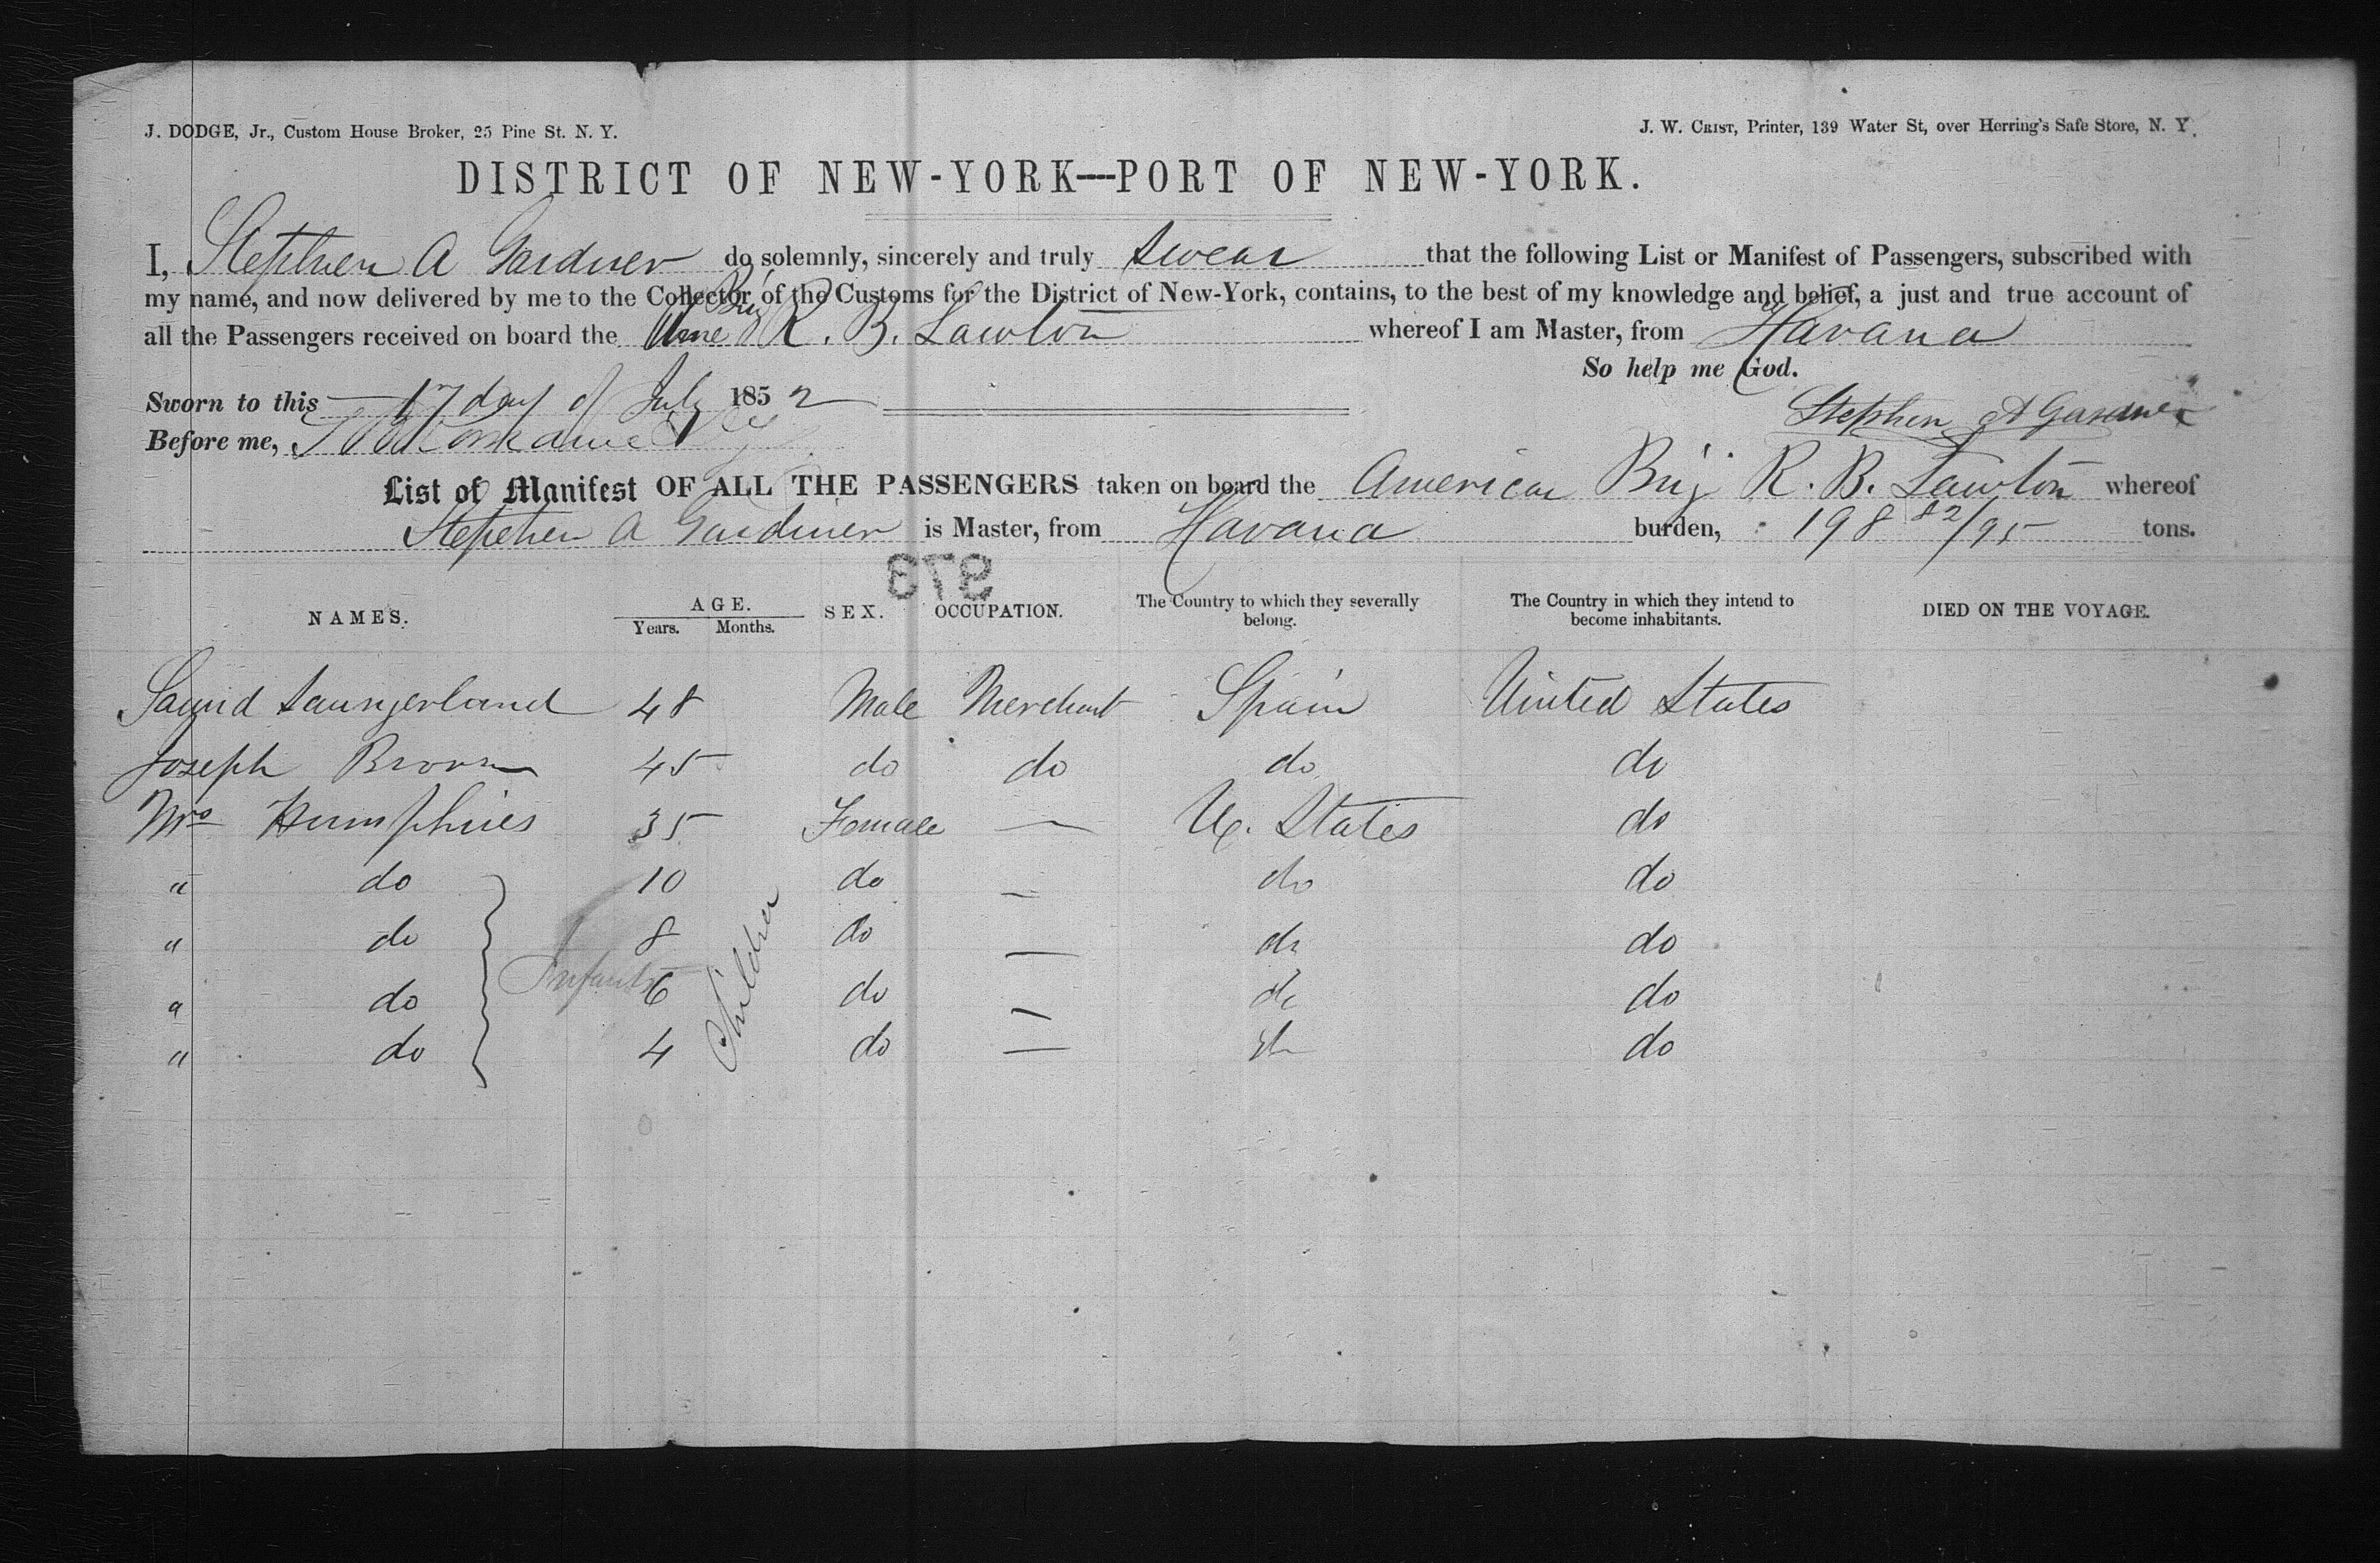 J. DODGE, Jr., Custom House Broker, 25 Pine St. N. Y.
J. W. CRIST, Printer, 139 Water St, over Herring's Safe Store, N. Y.
DISTRICT OF NEW-YORK—PORT OF NEW-YORK.
I, Stephen A Gardner do solemnly, sincerely and truly swear that the following List or Manifest of Passengers, subscribed with
my name, and now delivered by me to the Collector of the Customs for the District of New-York, contains, to the best of my knowledge and belief, a just and true account of
all the Passengers received on board the Brig R. B. Lawton whereof I am Master, from Havana
So help me God.
Sworn to this 17 day of July 1852
Stephen A Gardner
Before me,
List of Manifest OF ALL THE PASSENGERS taken on board the American Brig R. B. Lawton whereof
Stephen A Gardiner is Master, from Havana burden, 198 82/95 tons.
973
NAMES. AGE. Years. Months. SEX. OCCUPATION. The Country to which they severally belong. The Country in which they intend to become inhabitants. DIED ON THE VOYAGE.
48 Male Merchant Spain United States
Joseph Brown 45 do do do do
Mrs Humphries 35 Female — U. States do
" do 10 do — do do
" do 8 do — do do
" do 6 do — do do
" do 4 do — do do
Infants
Children